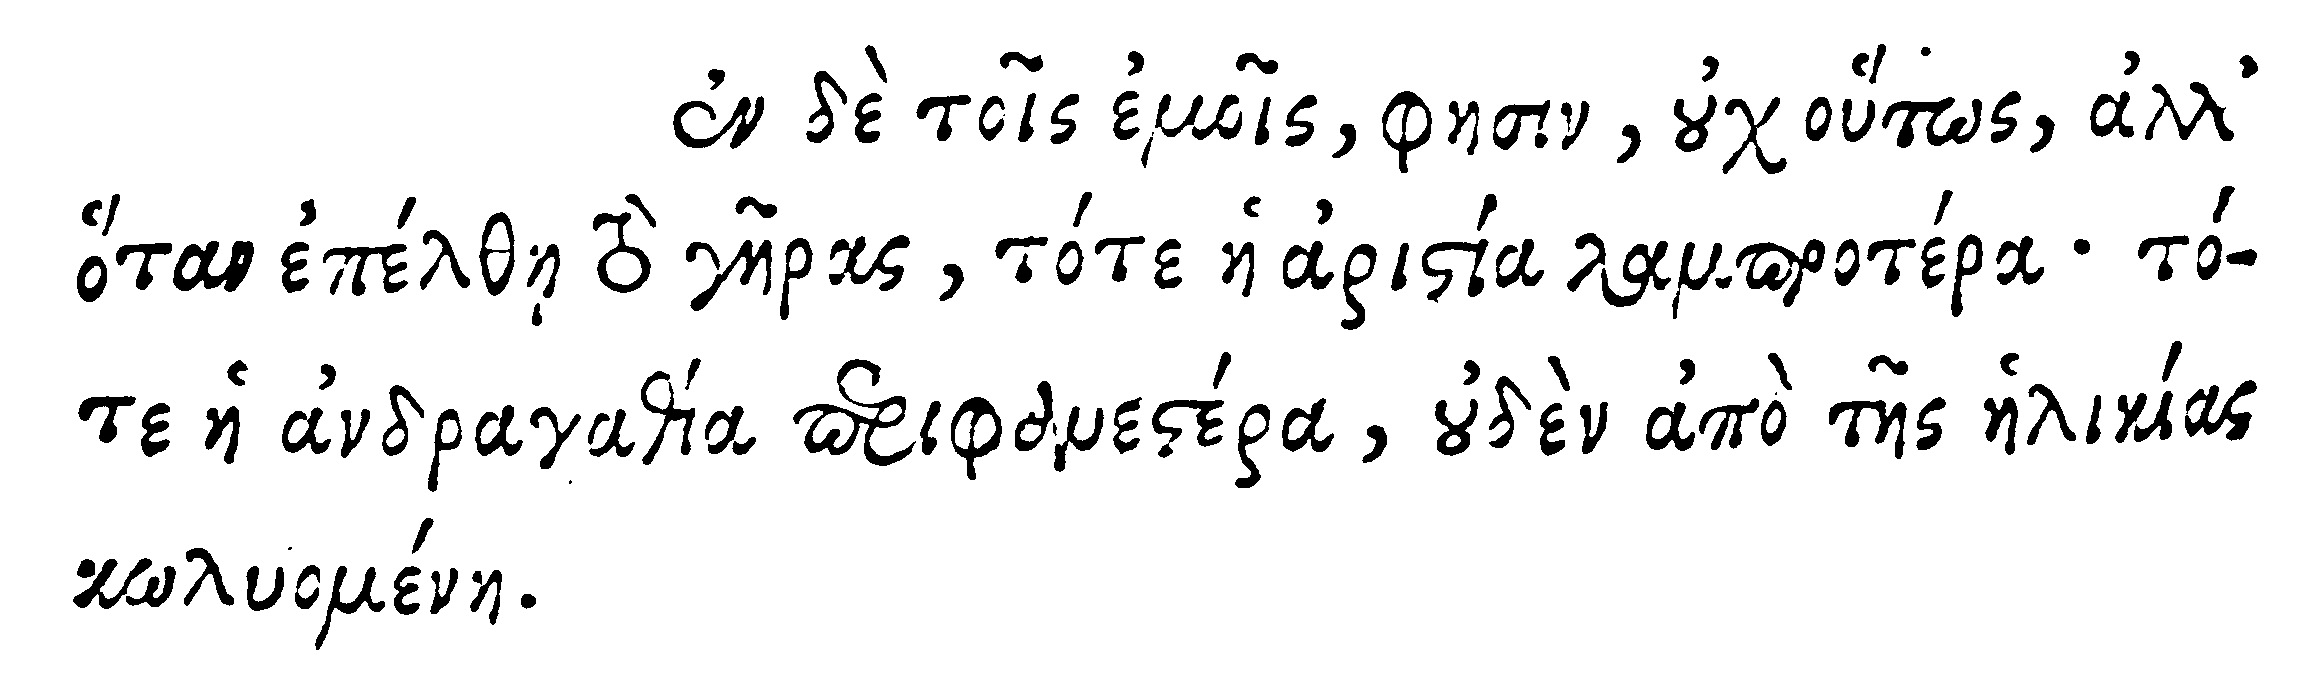 ἐν δὲ τοῖς ἐμοῖς, φησιν, οὐχ οὕτως, ἀλλ᾽
ὅταν ἐπέλθῃ τὸ γῆρας, τότε ἡ ἀριστία λαμπροτέρα· τό-
τε ἡ ἀνδραγαθία περιφανεστέρα, οὐδὲν ἀπὸ τῆς ἡλικίας
κωλυομένη.